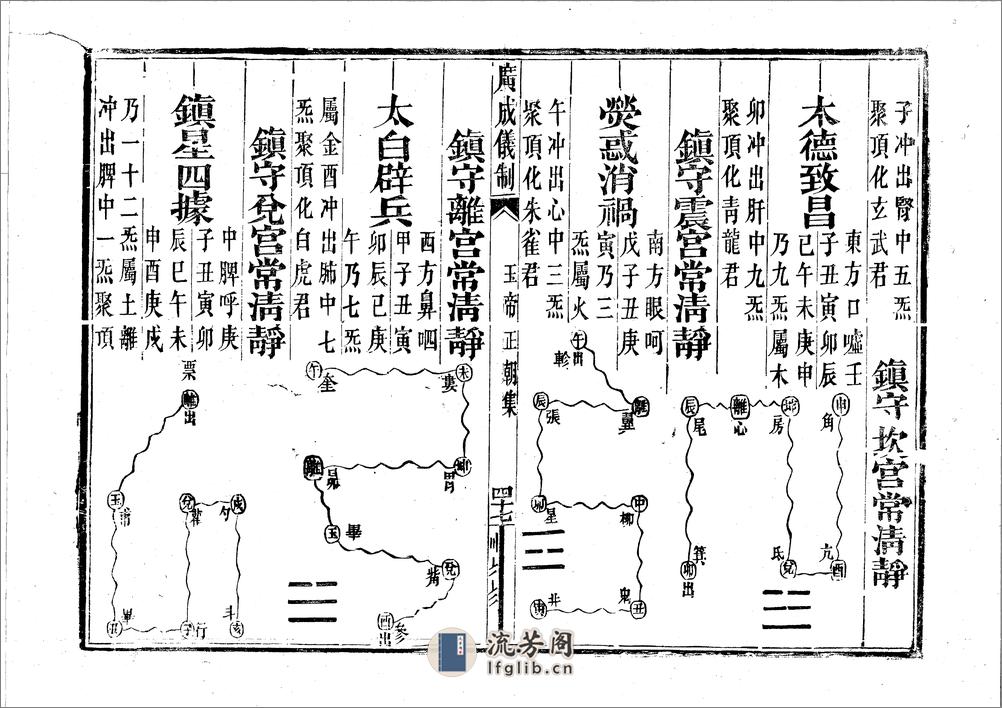 子冲出腎中五炁
聚頂化玄武君
鎮守坎宮常淸靜
木德致昌
東方口噓壬
子丑寅卯辰
巳午未庚申
乃九炁屬木
卯冲出肝中九炁
聚頂化靑龍君
鎮守震宮常淸靜
熒惑消禍
南方眼呵
戊子丑庚
寅乃三
炁屬火
午冲出心中三炁
聚頂化朱雀君
廣成儀制
玉帝正朝集
四十七
鎮守離宮常淸靜
太白辟兵
酉方鼻呬
甲子丑寅
卯辰巳庚
午乃七炁
屬金酉冲出肺中七
炁聚頂化白虎君
鎮守兌宮常淸靜
鎮星四據
中脾呼庚
子丑寅卯
辰巳午未
申酉庚戌
乃一十二炁屬土離
冲出脾中一炁聚頂
申
角
亢
酉
氐
兌
房
離
心
辰
尾
箕
卯出
午出
軫
翼
辰
張
星
申
柳
鬼
丑
井
未
婁
午
奎
胃
昴
畢
兌
觜
參
酉出
票
離出
玉
甫
畢
丑
兌
雚
行
子
戌
勺
斗
亥
流芳阁
lfglib.cn